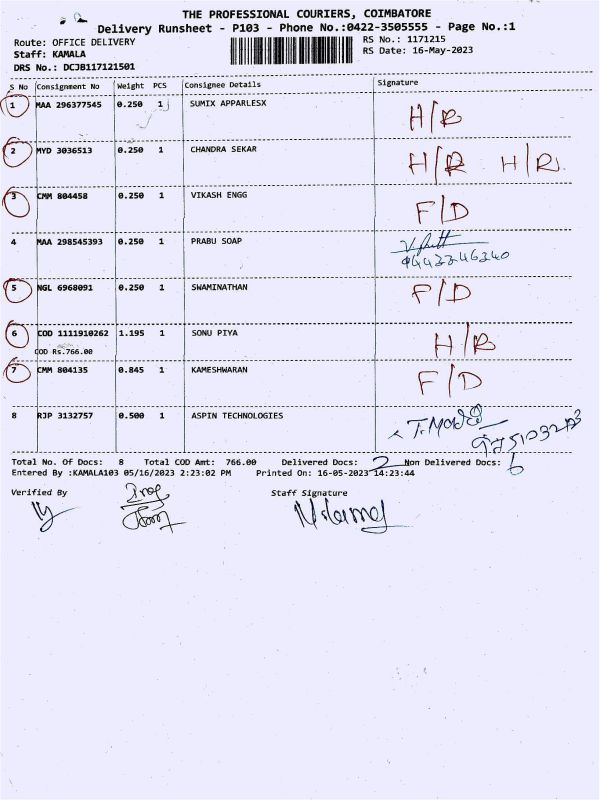 THE PROFESSIONAL COURIERS, COIMBATORE
Delivery Runsheet - P103 - Phone No.:0422-3505555 - Page No.:1
Route: OFFICE DELIVERY RS No.: 1171215
Staff: KAMALA RS Date: 16-May-2023
DRS No.: DCJB117121501
S No Consignment No Weight PCS Consignee Details Signature
1 MAA 296377545 0.250 1 SUMIX APPARLESX H/R
2 MYD 3036513 0.250 1 CHANDRA SEKAR H/R H/R
3 CMM 804458 0.250 1 VIKASH ENGG F/D
4 MAA 298545393 0.250 1 PRABU SOAP
5 NGL 6968091 0.250 1 SWAMINATHAN F/D
6 COD 1111910262 1.195 1 SONU PIYA H/R
COD Rs.766.00
7 CMM 804135 0.845 1 KAMESHWARAN F/D
8 RJP 3132757 0.500 1 ASPIN TECHNOLOGIES
Total No. Of Docs: 8 Total COD Amt: 766.00 Delivered Docs: 2 Non Delivered Docs: 6
Entered By :KAMALA103 05/16/2023 2:23:02 PM Printed On: 16-05-2023 14:23:44
Verified By Staff Signature